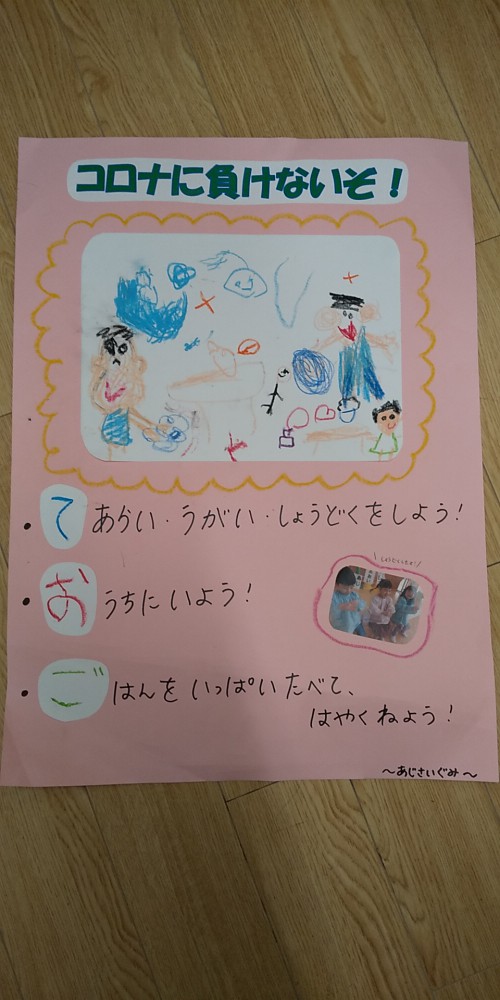 コロナに負けないぞ！
・てあらい・うがい・しょうどくをしよう！
・おうちにいよう！
・ごはんをいっぱいたべて、
はやくねよう！
～あじさいぐみ～